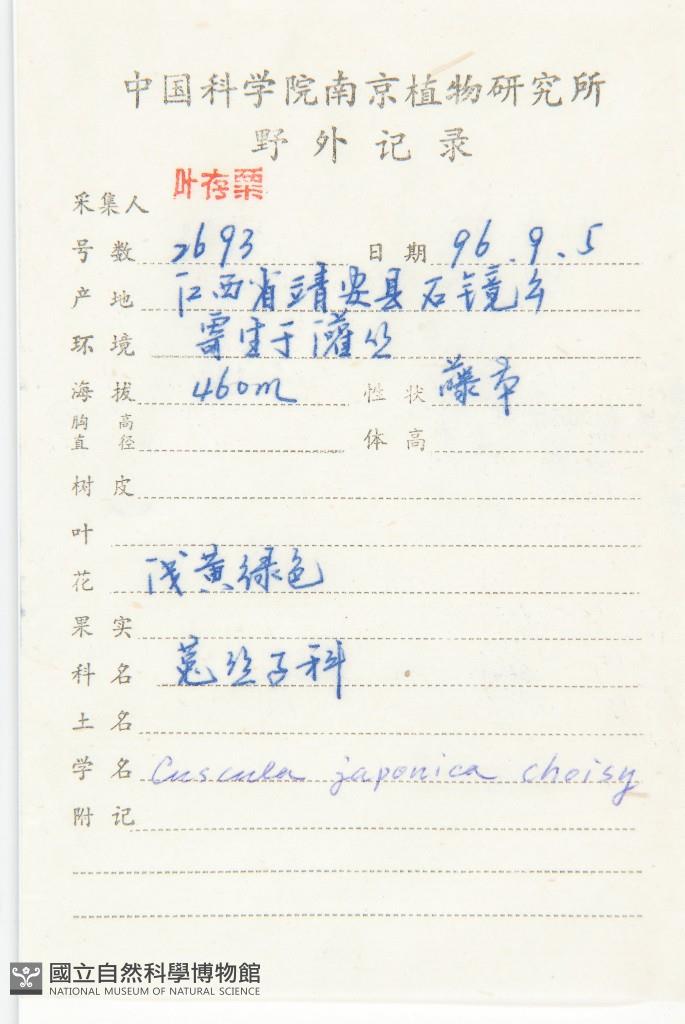 中国科学院南京植物研究所
野外记录
采集人 叶存粟
号数 2693 日期 96.9.5
产地 江西省靖安县石镜乡
环境 寄生于灌丛
海拔 460m 性状 藤本
胸高直径 体高
树皮
叶
花 浅黄绿色
果实
科名 菟丝子科
土名
学名 Cuscuta japonica choisy
附记
國立自然科學博物館
NATIONAL MUSEUM OF NATURAL SCIENCE